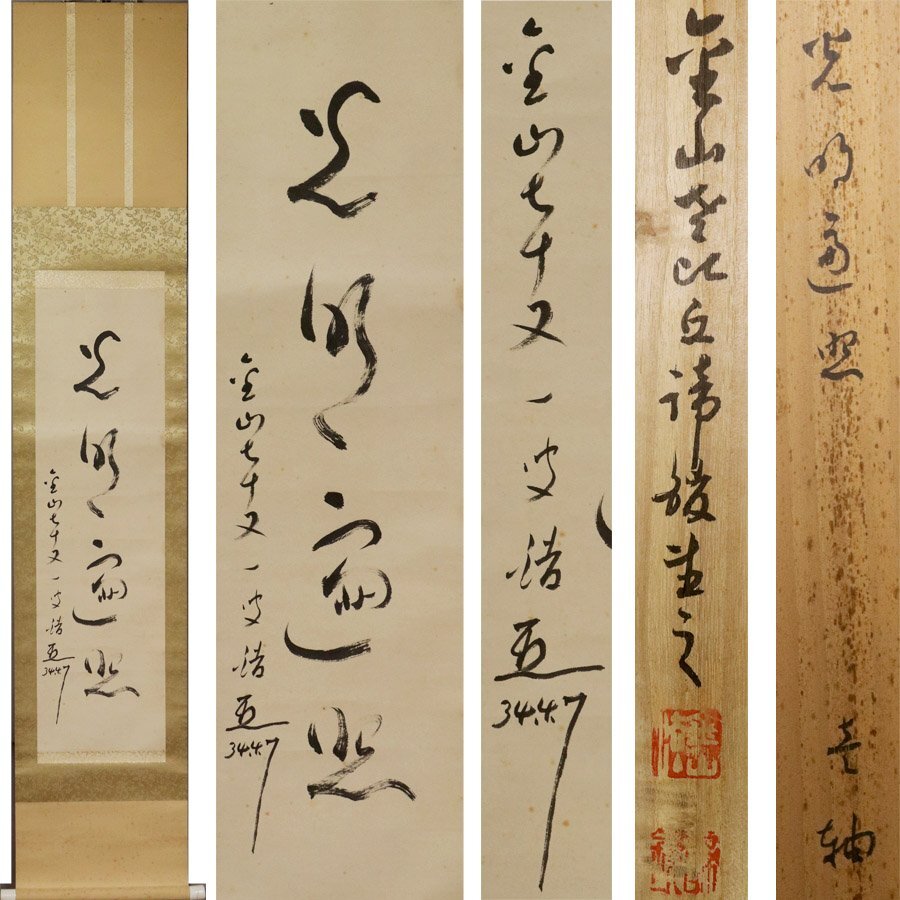 光明遍照
金山七十又一叟
34.4.7
光明遍照
金山七十又一叟
34.4.7
金山七十又一叟
34.4.7
金山老比丘諦書之
光明遍照 壱軸